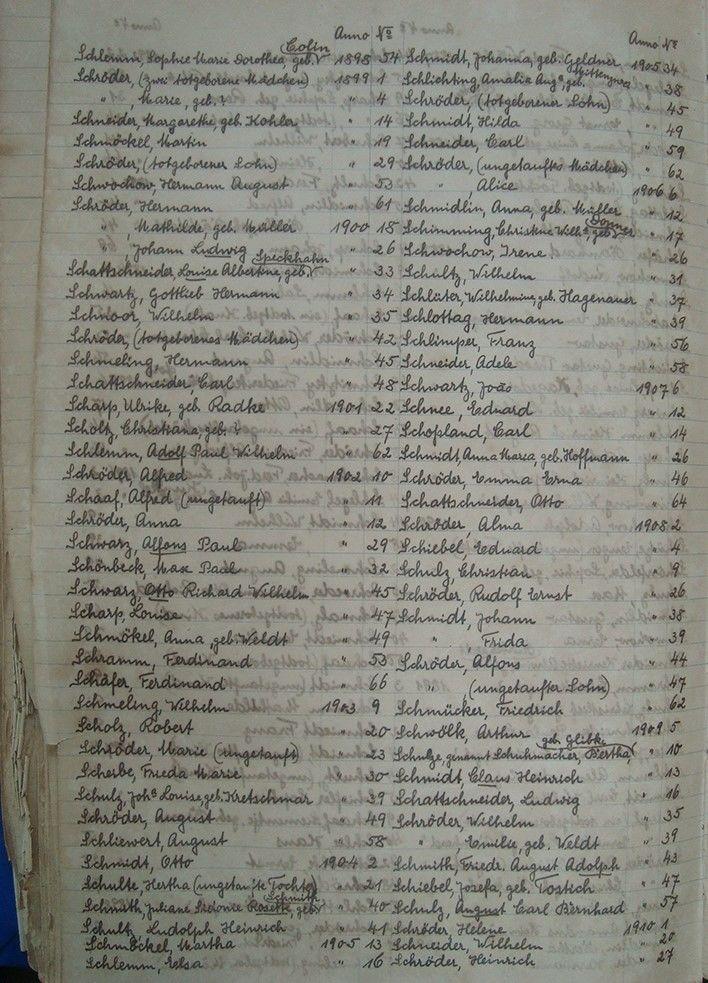 Anno No
Colin
Schlemm, Sophie Marie Dorothea, geb. 1898 54
Schröder, (zwei totgeborene Mädchen) 1899 1
" , Marie, geb. ? " 4
Schneider, Margarethe, geb. Kohler " 14
Schmöckel, Martin " 19
Schröder, (totgeborener Sohn) " 29
Schwochow, Hermann August " 53
Schröder, Hermann " 61
" Mathilde, geb. Müller 1900 18
" , Johann Ludwig " 26
Speckhahn
Schattschneider, Louise Albertine, geb. " 33
Schwartz, Gottlieb Hermann " 34
Schnoor, Wilhelm " 35
Schröder, (totgeborenes Mädchen) " 42
Schmeling, Hermann " 45
Schattschneider, Carl " 48
Scharp, Ulrike, geb. Radke 1901 22
Scholz, Christiana, geb. ? " 27
Schlemm, Adolf Paul Wilhelm " 62
Schröder, Alfred 1902 10
Schaaf, Alfred (ungetauft) " 11
Schröder, Anna " 12
Schwarz, Alfons Paul " 29
Schönbeck, Max Paul " 32
Schwarz, Otto Richard Wilhelm " 45
Scharp, Louise " 47
Schmökel, Anna, geb. Weldt " 49
Schramm, Ferdinand " 53
Schäfer, Ferdinand " 66
Schmeling, Wilhelm 1903 9
Scholz, Robert " 20
Schröder, Marie (ungetauft) " 23
Scherbe, Frieda Marie " 30
Schulz, Joha Louise, geb. Kretschmar " 39
Schröder, August " 49
Schliewert, August " 58
Schmidt, Otto 1904 2
Schulte, Hertha (ungetaufte Tochter) " 21
Schmith
Schmith, Juliane Sidonie Rosette, geb. " 40
Schultz, Ludolph Heinrich " 41
Schmöckel, Martha 1905 13
Schlemm, Elsa " 16
Anno No
Schmidt, Johanna, geb. Geldner 1905 34
Schlichting, Amalia Auga, geb. " 38
Schröder, (totgeborener Sohn) " 45
Schmidt, Hilda " 49
Schneider, Carl " 59
Schröder, (ungetauftes Mädchen) " 62
" , Alice 1906 6
Schmidlin, Anna, geb. Müller " 12
Donner
Schimming, Christine Wilha, geb. " 17
Schwochow, Irene " 26
Schultz, Wilhelm " 31
Schlüter, Wilhelmine, geb. Hagenauer " 37
Schlottag, Hermann " 39
Schlimper, Franz " 56
Schneider, Adele " 58
Schwartz, João 1907 6
Schnee, Eduard " 12
Schopland, Carl " 14
Schmidt, Anna Maria, geb. Hoffmann " 26
Schröder, Emma Erna " 46
Schattschneider, Otto " 64
Schröder, Alma 1908 2
Schiebel, Eduard " 4
Schulz, Christian " 9
Schröder, Rudolf Ernst " 26
Schmidt, Johann " 38
" , Frida " 39
Schröder, Alfons " 44
" , (ungetaufter Sohn) " 47
Schmücker, Friedrich " 62
Schwölk, Arthur 1909 5
geb. Glibki
Schulze, genannt Schuhmacher, Bertha " 10
Schmidt, Claus Heinrich " 13
Schattschneider, Ludwig " 16
Schröder, Wilhelm " 35
" , Emilie, geb. Weldt " 39
Schmith, Friedr. August Adolph " 43
Schiebel, Josefa, geb. Tostich " 47
Schulz, August Carl Bernhard " 57
Schröder, Helene 1910 1
Schneider, Wilhelm " 20
Schröder, Heinrich " 27